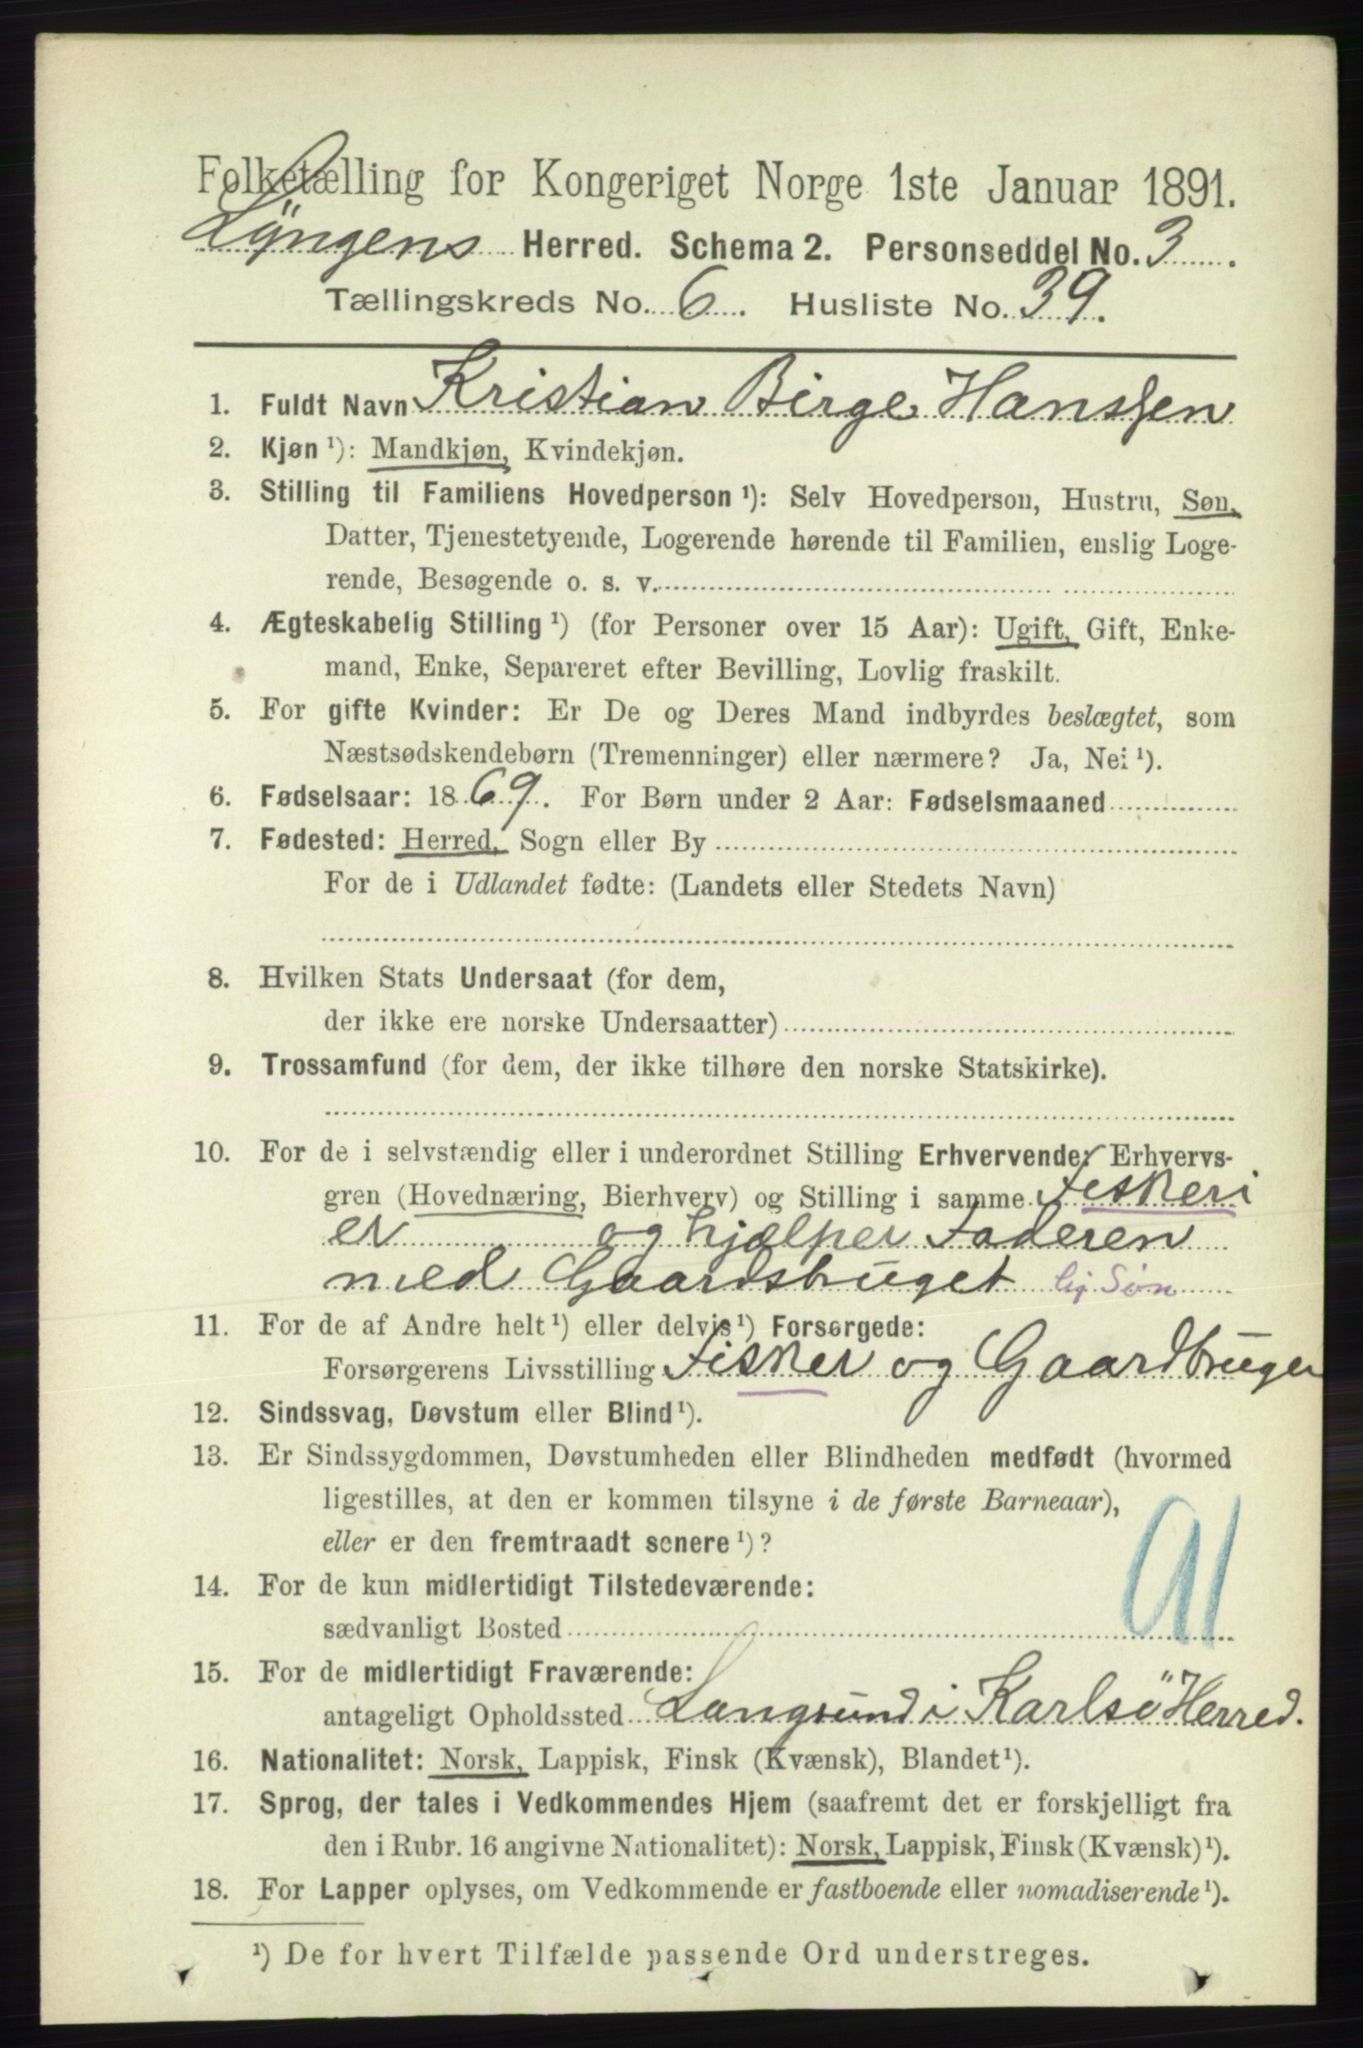 Folketælling for Kongeriget Norge 1ste Januar 1891.
Lyngens Herred. Schema 2. Personseddel No. 3.
Tællingskreds No. 6. Husliste No. 39.
1. Fuldt Navn Kristian Birge Hanssen
2. Kjøn ¹): Mandkjøn, Kvindekjøn.
3. Stilling til Familiens Hovedperson ¹): Selv Hovedperson, Hustru, Søn,
Datter, Tjenestetyende, Logerende hørende til Familien, enslig Loge-
rende, Besøgende o. s. v.
4. Ægteskabelig Stilling ¹) (for Personer over 15 Aar): Ugift, Gift, Enke-
mand, Enke, Separeret efter Bevilling, Lovlig fraskilt.
5. For gifte Kvinder: Er De og Deres Mand indbyrdes beslægtet, som
Næstsødskendebørn (Tremenninger) eller nærmere? Ja, Nei ¹).
6. Fødselsaar: 1869. For Børn under 2 Aar: Fødselsmaaned
7. Fødested: Herred, Sogn eller By
For de i Udlandet fødte: (Landets eller Stedets Navn)
8. Hvilken Stats Undersaat (for dem,
der ikke ere norske Undersaatter)
9. Trossamfund (for dem, der ikke tilhøre den norske Statskirke).
10. For de i selvstændig eller i underordnet Stilling Erhvervende: Erhvervs-
gren (Hovednæring, Bierhverv) og Stilling i samme Fiskeri
er og hjælper Faderen
med Gaardsbruget lig Søn
11. For de af Andre helt ¹) eller delvis ¹) Forsørgede:
Forsørgerens Livsstilling Fisker og Gaardbruger
12. Sindssvag, Døvstum eller Blind ¹).
13. Er Sindssygdommen, Døvstumheden eller Blindheden medfødt (hvormed
ligestilles, at den er kommen tilsyne i de første Barneaar),
eller er den fremtraadt senere ¹)?
14. For de kun midlertidigt Tilstedeværende:
sædvanligt Bosted
91
15. For de midlertidigt Fraværende:
antageligt Opholdssted Langsund i Karlsö Herred.
16. Nationalitet: Norsk, Lappisk, Finsk (Kvænsk), Blandet ¹).
17. Sprog, der tales i Vedkommendes Hjem (saafremt det er forskjelligt fra
den i Rubr. 16 angivne Nationalitet): Norsk, Lappisk, Finsk (Kvænsk) ¹).
18. For Lapper oplyses, om Vedkommende er fastboende eller nomadiserende ¹).
¹) De for hvert Tilfælde passende Ord understreges.